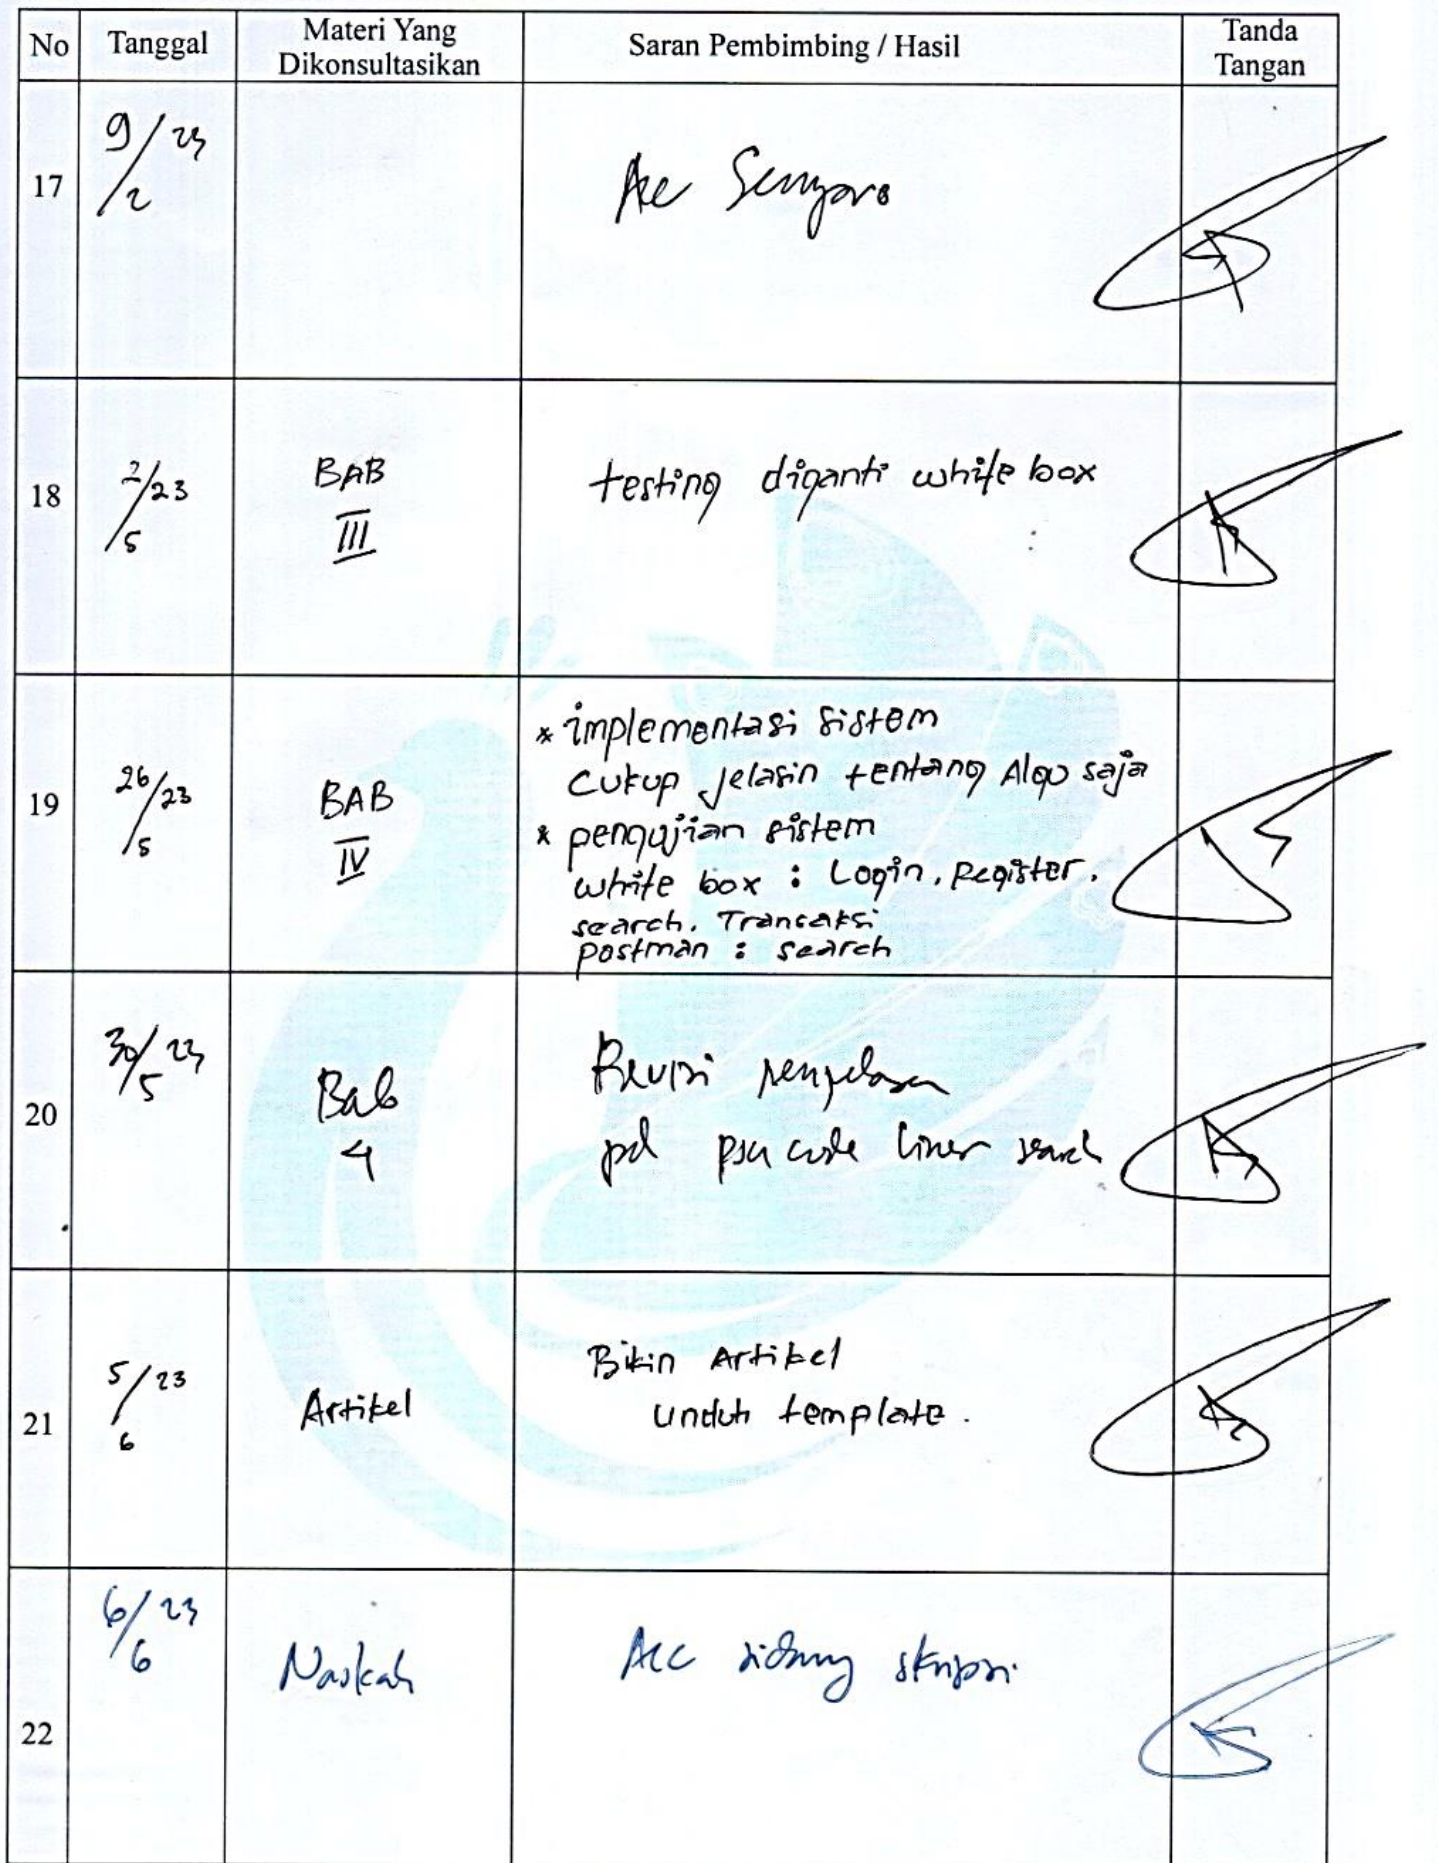 No Tanggal Materi Yang Dikonsultasikan Saran Pembimbing / Hasil Tanda Tangan
17 9/2 23 Acc
18 2/5 23 BAB III testing diganti white box
19 26/5 23 BAB IV * implementasi sistem
Cukup jelasin tentang Algo saja
* pengujian sistem
white box : Login, Register,
search, Transaksi
postman : search
20 30/5 23 Bab 4 Revisi penjelasan
pd code liner search
21 5/6 23 Artikel Bikin Artikel
unduh template.
22 6/6 23 Naskah Acc sidang skripsi